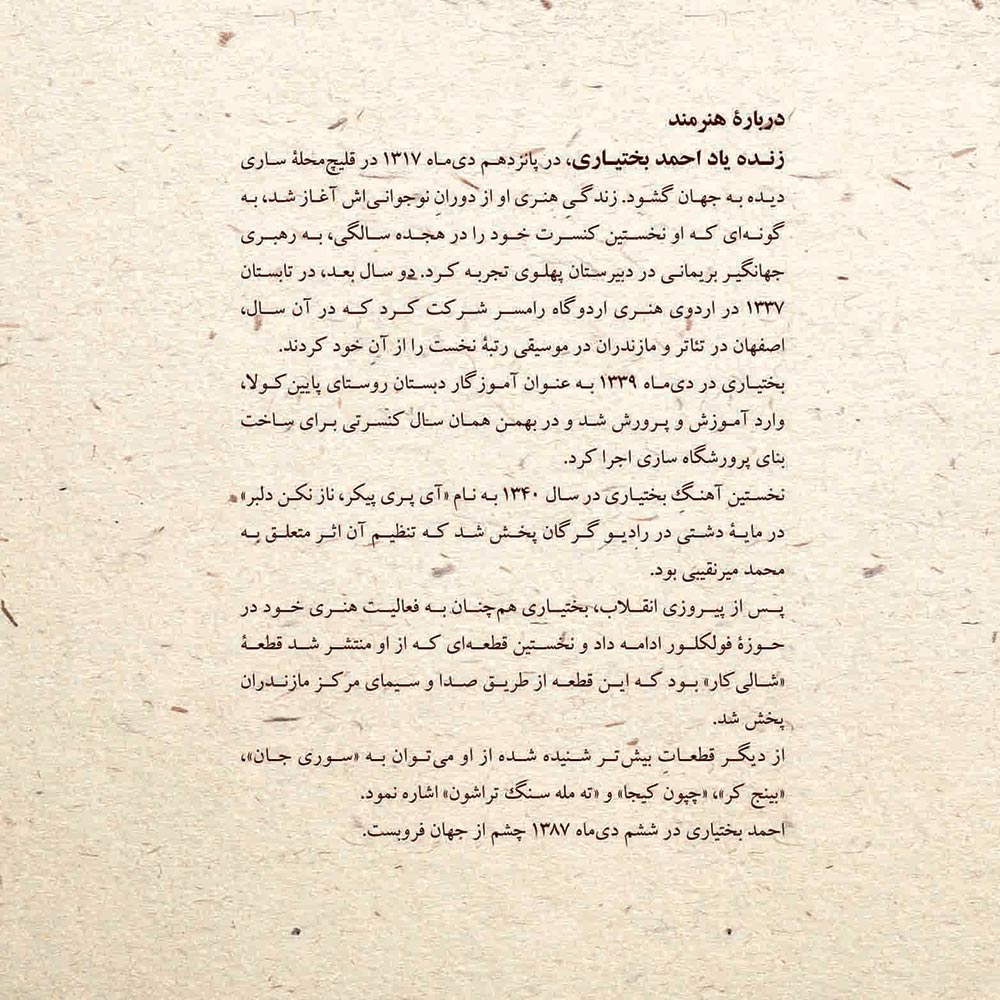 دربارهٔ هنرمند
زنده یاد احمد بختیاری، در پانزدهم دی‌ماه ۱۳۱۷ در قلیچ‌محلهٔ ساری
دیده به جهان گشود. زندگیِ هنری او از دورانِ نوجوانی‌اش آغاز شد، به
گونه‌ای که او نخستین کنسرت خود را در هجده سالگی، به رهبری
جهانگیر بریمانی در دبیرستان پهلوی تجربه کرد. دو سال بعد، در تابستان
۱۳۳۷ در اردوی هنری اردوگاه رامسر شرکت کرد که در آن سال،
اصفهان در تئاتر و مازندران در موسیقی رتبهٔ نخست را از آنِ خود کردند.
بختیاری در دی‌ماه ۱۳۳۹ به عنوان آموزگار دبستان روستای پایین‌کولا،
وارد آموزش و پرورش شد و در بهمن همان سال کنسرتی برای ساخت
بنای پرورشگاه ساری اجرا کرد.
نخستین آهنگِ بختیاری در سال ۱۳۴۰ به نام «آی پری پیکر، ناز نکن دلبر»
در مایهٔ دشتی در رادیو گرگان پخش شد که تنظیم آن اثر متعلق به
محمد میرنقیبی بود.
پس از پیروزی انقلاب، بختیاری هم‌چنان به فعالیت هنری خود در
حوزهٔ فولکلور ادامه داد و نخستین قطعه‌ای که از او منتشر شد قطعهٔ
«شالی‌کار» بود که این قطعه از طریق صدا و سیمای مرکز مازندران
پخش شد.
از دیگر قطعاتِ بیش‌تر شنیده شده از او می‌توان به «سوری جان»،
«بینج کر»، «چپون کیجا» و «ته مله سنگ تراشون» اشاره نمود.
احمد بختیاری در ششم دی‌ماه ۱۳۸۷ چشم از جهان فروبست.